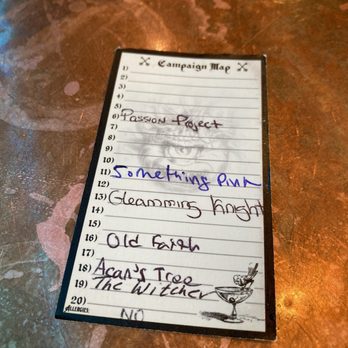 Campaign Map
1)
2)
3)
4)
5)
6) Passion Project
7)
8)
9)
10)
11) Something Pink
12)
13) Gleamming Knight
14)
15)
16) Old Faith
17)
18) Acan's Tree
19) The Witcher
20)
Allergies: NO